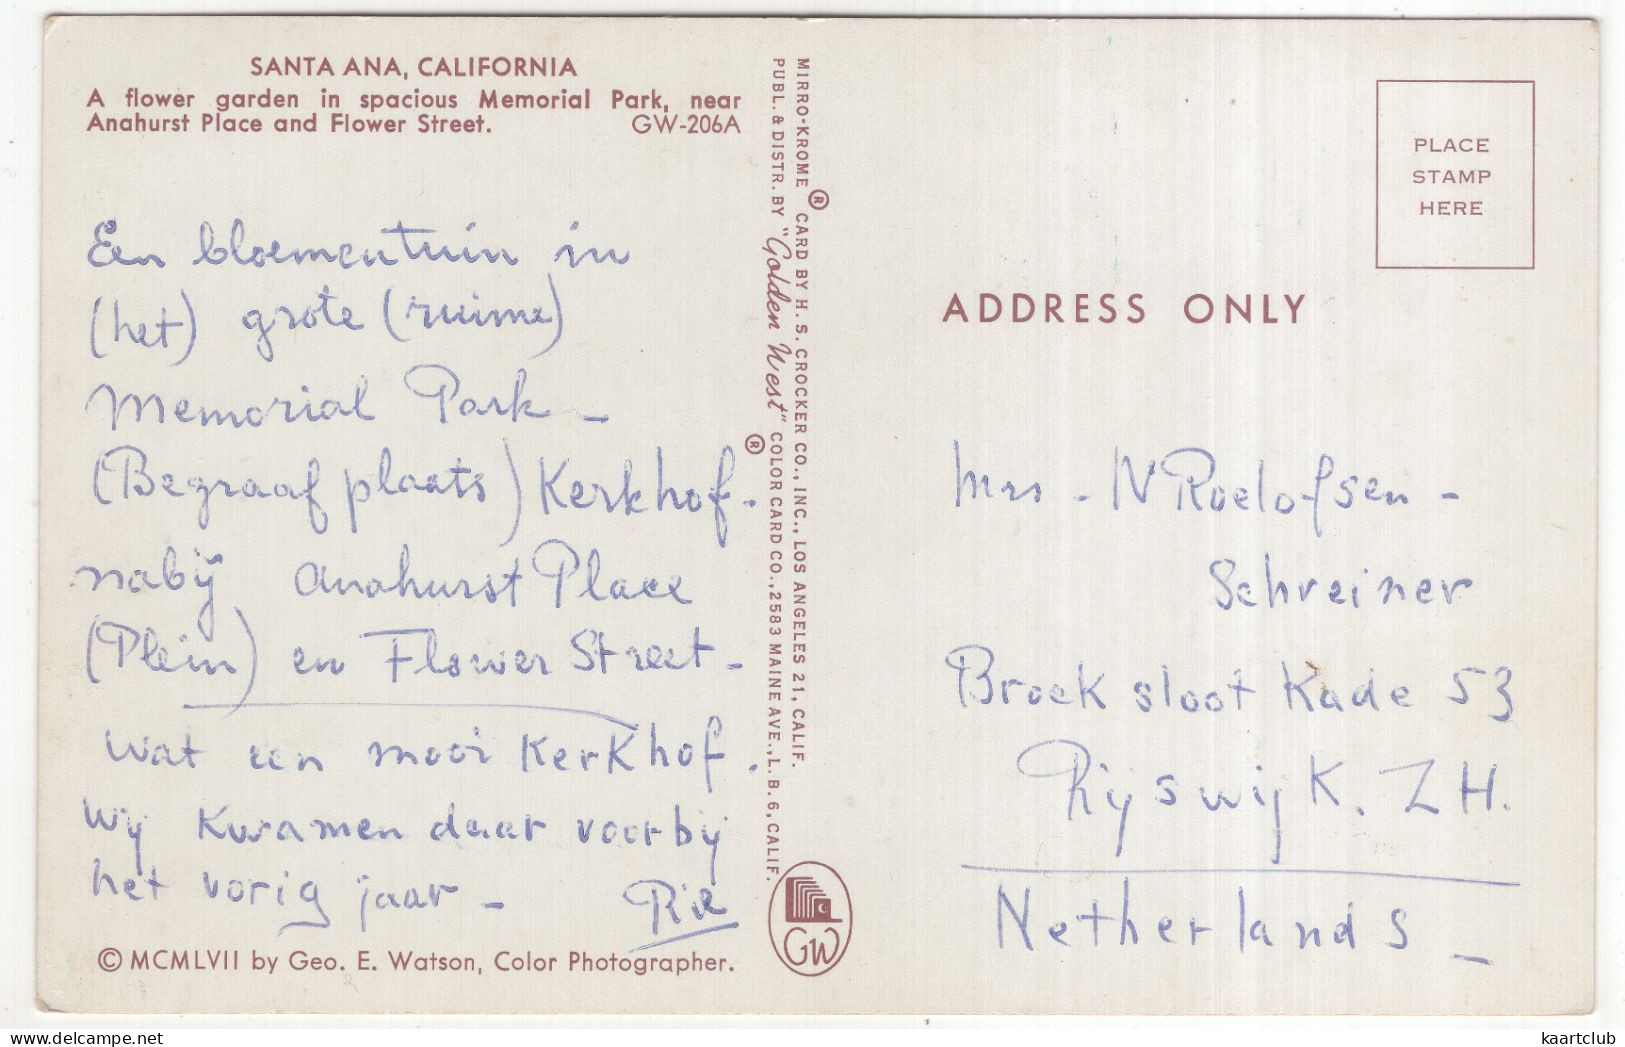 SANTA ANA, CALIFORNIA
A flower garden in spacious Memorial Park, near
Anahurst Place and Flower Street. GW-206A
Een bloementuin in
(het) grote (ruime)
Memorial Park -
(Begraafplaats) Kerkhof.
nabij Anahurst Place
(Plein) en Flower Street -
wat een mooi Kerkhof.
wij kwamen daar voorbij
het vorig jaar - Rie
© MCMLVII by Geo. E. Watson, Color Photographer.
MIRRO-KROME ® CARD BY H. S. CROCKER CO., INC., LOS ANGELES 21, CALIF.
PUBL. & DISTR. BY "Golden West" ® COLOR CARD CO., 2583 MAINE AVE., L. B. 6, CALIF.
GW
PLACE
STAMP
HERE
ADDRESS ONLY
Mrs - N Roelofsen -
Schreiner
Broek sloot Kade 53
Rijswijk. Z H.
Netherlands -
delcampe.net
kaartclub